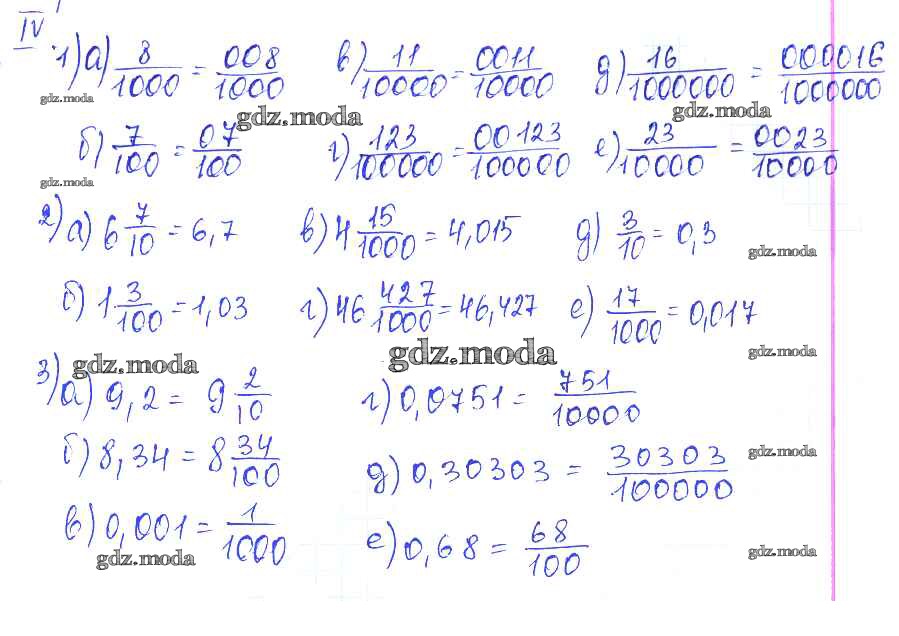 IV
1) а) 8/1000 = 008/1000 в) 11/10000 = 0011/10000 д) 16/1000000 = 000016/1000000
gdz.moda gdz.moda gdz.moda
б) 7/100 = 07/100 г) 123/100000 = 00123/100000 е) 23/10000 = 0023/10000
gdz.moda
2) а) 6 7/10 = 6,7 в) 4 15/1000 = 4,015 д) 3/10 = 0,3
gdz.moda
б) 1 3/100 = 1,03 г) 46 427/1000 = 46,427 е) 17/1000 = 0,017
gdz.moda gdz.moda gdz.moda
3) а) 9,2 = 9 2/10 г) 0,0751 = 751/10000
б) 8,34 = 8 34/100 д) 0,30303 = 30303/100000
gdz.moda
в) 0,001 = 1/1000 е) 0,68 = 68/100
gdz.moda gdz.moda